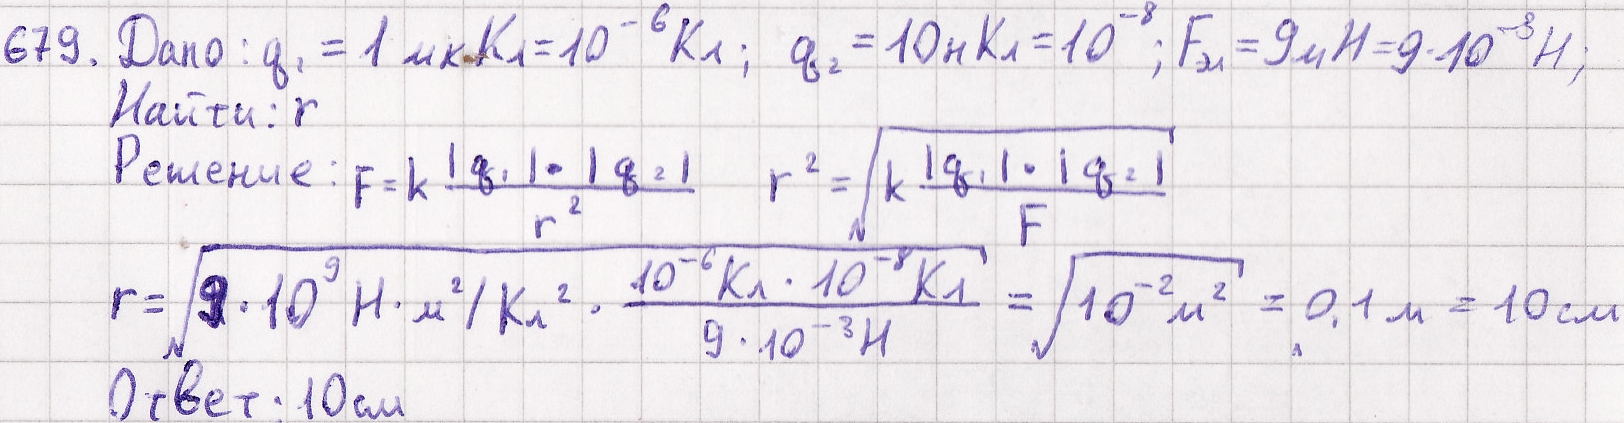 679. Дано: q₁ = 1 мкКл = 10⁻⁶Кл; q₂ = 10нКл = 10⁻⁸; Fэл = 9мН = 9·10⁻³Н;
Найти: r
Решение: F = k |q₁|·|q₂| / r² r² = √(k |q₁|·|q₂| / F)
r = √(9·10⁹ Н·м²/Кл² · 10⁻⁶Кл·10⁻⁸Кл / 9·10⁻³Н) = √(10⁻²м²) = 0,1м = 10см
Ответ: 10см